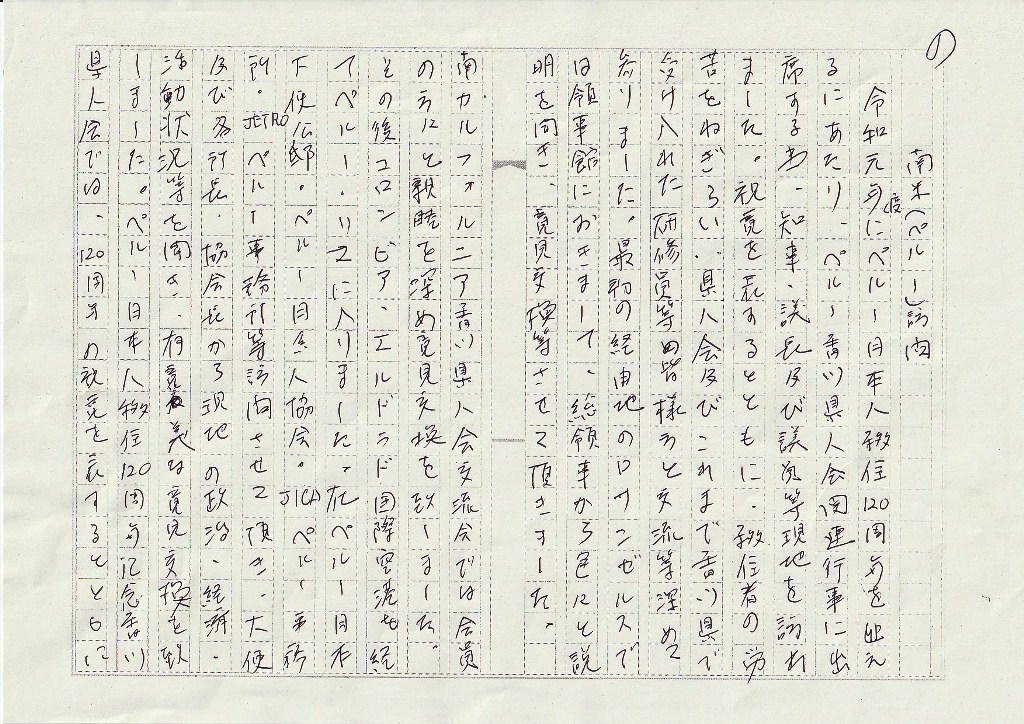 の
南米(ペルー)訪問
令和元年度にペルー日本人移住120周年を迎え
るにあたり、ペルー香川県人会関連行事に出
席する為、知事・議長及び議員等現地を訪れ
ました。祝意を表するとともに、移住者の労
苦をねぎらい、県人会及びこれまで香川県で
受け入れた研修員等の皆様方と交流等深めて
参りました。最初の経由地のロサンゼルスで
は領事館におきまして、総領事から色々と説
明を聞き、意見交換等させて頂きました。
南カルフォルニア香川県人会交流会では会員
の方々と親睦を深め意見交換を致しました。
その後コロンビア、エルドラド国際空港を経
てペルー・リマに入りました。在ペルー日本
大使公邸・ペルー日系人協会・JICAペルー事務
所・JETROペルー事務所等訪問させて頂き、大使
及び各所長・協会長から現地の政治・経済・
活動状況等を聞き、有意義な意見交換を致
しました。ペルー日本人移住120周年記念香川
県人会では、120周年の祝意を表するとともに